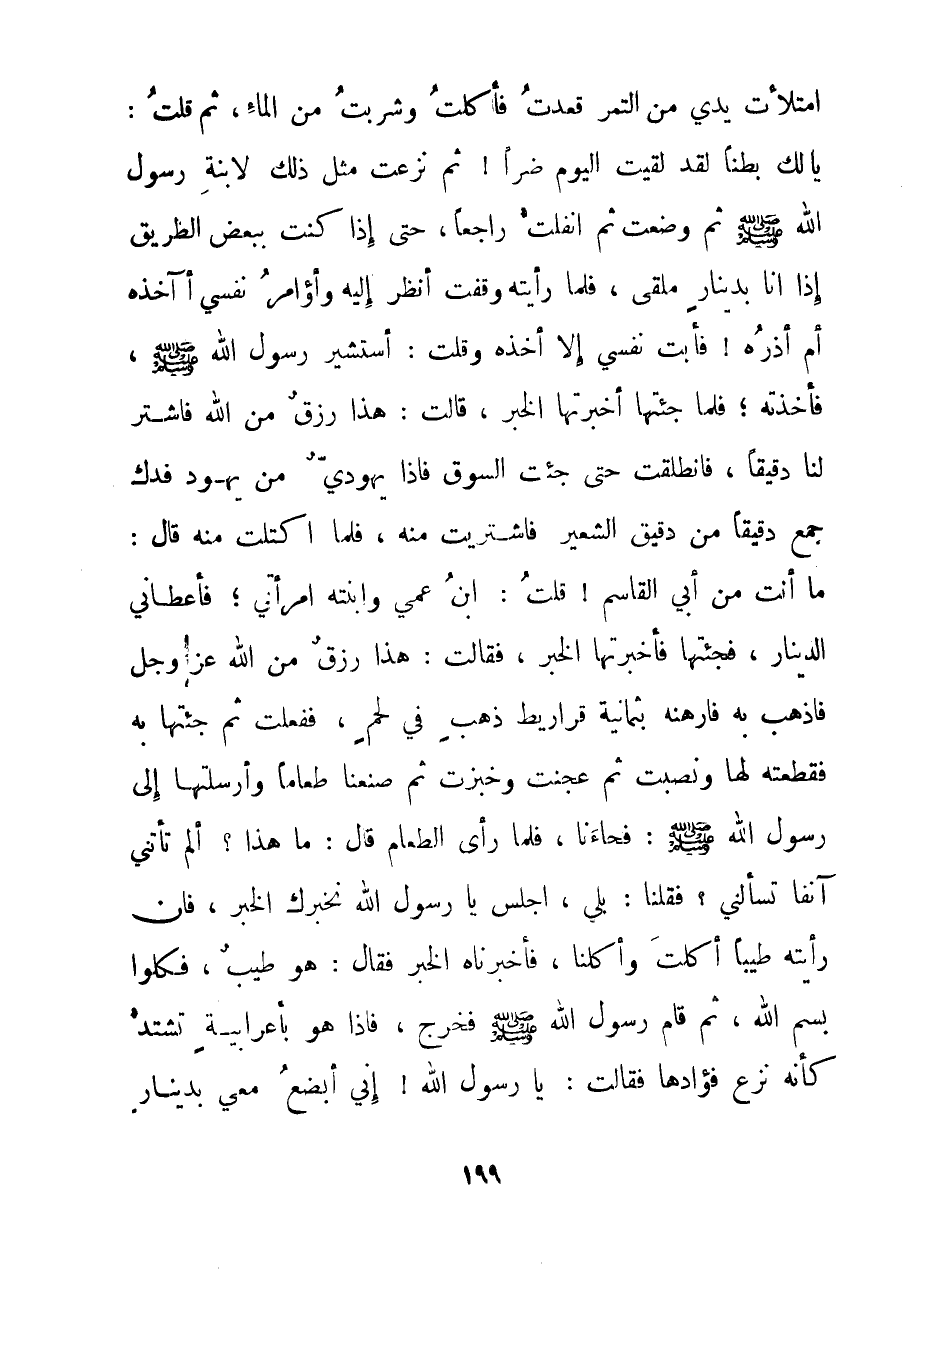 امتلأت يدي من التمر قعدتُ فأكلتُ وشربتُ من الماءِ ، ثم قلتُ :
يالك بطناً لقد لقيت اليوم ضراً ! ثم نزعت مثل ذلك لابنةِ رسول
الله ﷺ ثم وضعت ثم انفلتُّ راجعاً ، حتى إذا كنت ببعض الطريق
إذا انا بدينارٍ ملقى ، فلما رأيته وقفت أنظر إليه وأؤامرُ نفسي أآخذه
أم أذرُه ! فأبت نفسي إلا أخذه وقلت : أستشير رسول الله ﷺ ،
فأخذته ؛ فلما جئتها أخبرتها الخبر ، قالت : هذا رزقٌ من الله فاشتر
لنا دقيقاً ، فانطلقت حتى جئت السوق فاذا يهوديٌّ من يهود فدك
جمع دقيقاً من دقيق الشعير فاشتريت منه ، فلما اكتلت منه قال :
ما أنت من أبي القاسم ! قلتُ : ابنُ عمي وابنته امرأتي ؛ فأعطاني
الدينار ، فجئتها فأخبرتها الخبر ، فقالت : هذا رزقٌ من الله عز وجل
فاذهب به فارهنه بثمانية قراريط ذهبٍ في لحمٍ ، ففعلت ثم جئتها به
فقطعته لها ونصبت ثم عجنت وخبزت ثم صنعنا طعاماً وأرسلتها إلى
رسول الله ﷺ : فجاءَنا ، فلما رأى الطعام قال : ما هذا ؟ ألم تأتني
آنفا تسألني ؟ فقلنا : بلى ، اجلس يا رسول الله نخبرك الخبر ، فان
رأيته طيباً أكلتَ وأكلنا ، فأخبرناه الخبر فقال : هو طيبٌ ، فكلوا
بسم الله ، ثم قام رسول الله ﷺ فخرج ، فاذا هو بأعرابيةٍ تشتدُّ
كأنه نزع فؤادها فقالت : يا رسول الله ! إني أبضعُ معي بدينارٍ
١٩٩